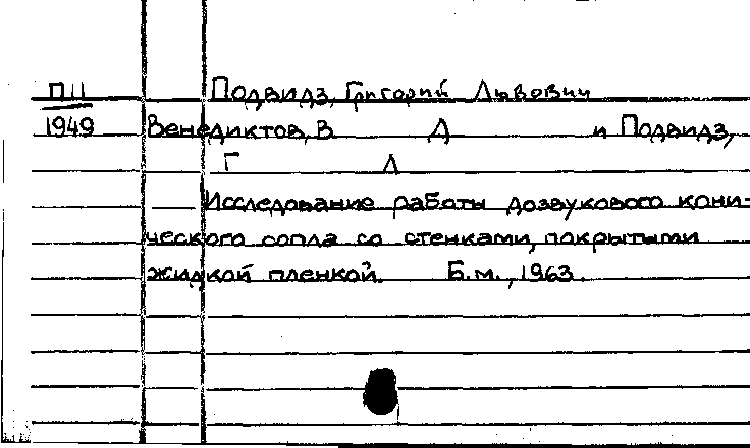 П11 Подвидз, Григорий Львович
1949 Венедиктов, В Д и Подвидз,
Г Л
Исследование работы дозвукового кони-
ческого сопла со стенками, покрытыми
жидкой пленкой. Б.м., 1963.